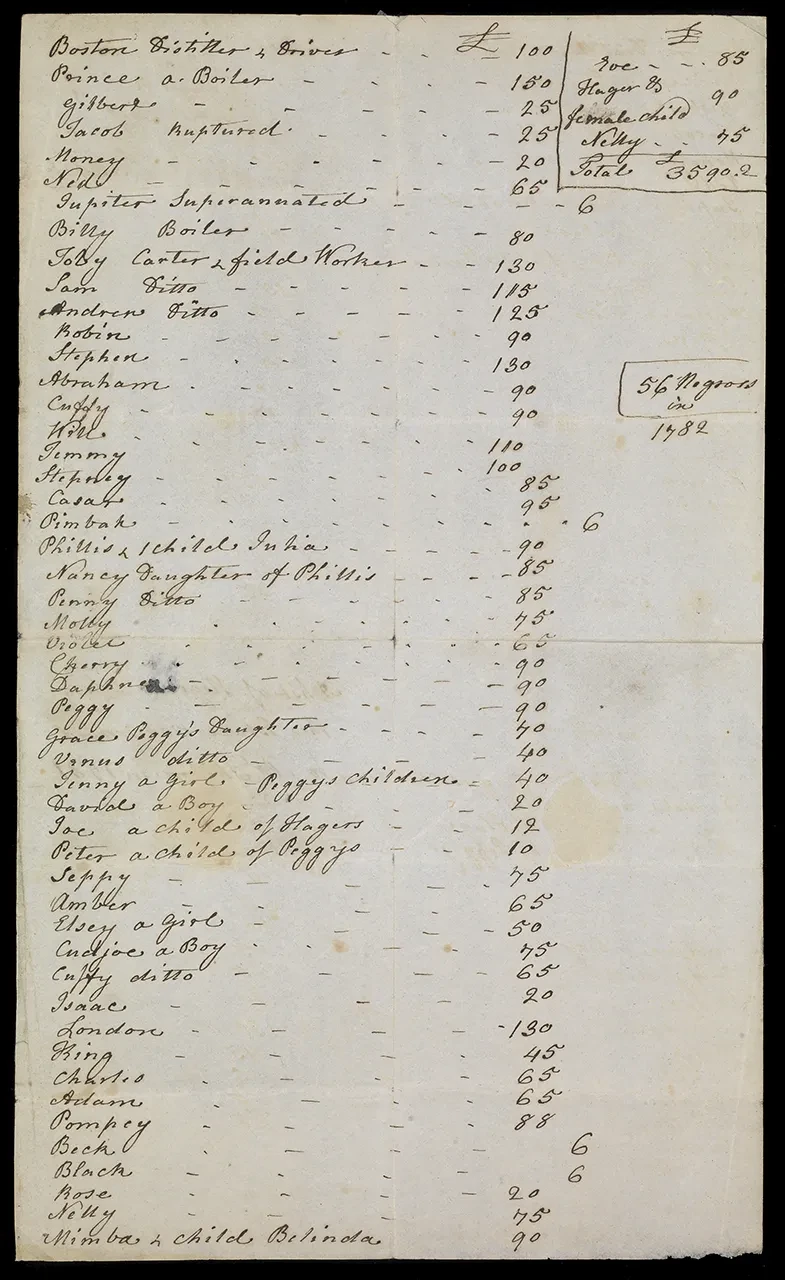 £
Boston Distiller & Driver - - - 100
Prince a Boiler - - - - 150
Gilbert - - - - 25
Jacob Ruptured - - - - 25
Money - - - - 20
Ned - - - - 65
Jupiter Superannuated - - - - 6
Billy Boiler - - - - 80
Toby Carter & field Worker - - - 130
Sam Ditto - - - - 115
Andrew Ditto - - - - 125
Robin - - - - 90
Stephen - - - - 130
Abraham - - - - 90
Cuffy - - - - 90
Will - - - - 110
Jemmy - - - - 100
Stepney - - - - 85
Casar - - - - 95
Pimbah - - - - 6
Phillis & 1 child Julia - - - - 90
Nancy Daughter of Phillis - - - 85
Penny Ditto - - - - 85
Molly - - - - 75
Violet - - - - 65
Cherry - - - - 90
Daphne - - - - 90
Peggy - - - - 90
Grace Peggy's Daughter - - - 70
Venus ditto - - - - 40
Jenny a Girl - Peggys Children - 40
David a Boy - - - - 20
Joe a child of Hagers - - 12
Peter a child of Peggys - - 10
Seppy - - - - 75
Amber - - - - 65
Elsey a Girl - - - - 50
Cudjoe a Boy - - - - 75
Cuffy ditto - - - - 65
Isaac - - - - 20
London - - - - 130
King - - - - 45
Charles - - - - 65
Adam - - - - 65
Pompey - - - - 88
Beck - - - - 6
Black - - - - 6
Rose - - - - 20
Nelly - - - - 75
Mimba & child Belinda 90
£
- - - 85
Hager &
female child 90
Nelly - - 75
Total £ 3590.2
56 Negroes
in
1782